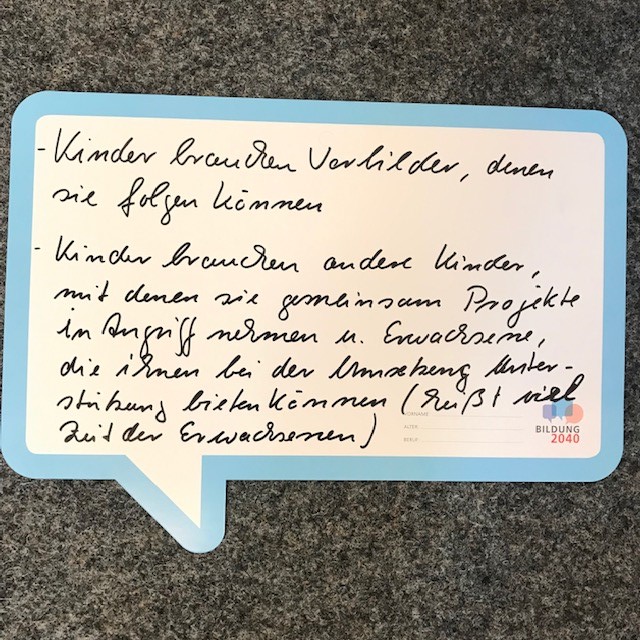 - Kinder brauchen Vorbilder, denen
sie folgen können
- Kinder brauchen andere Kinder,
mit denen sie gemeinsam Projekte
in Angriff nehmen u. Erwachsene,
die ihnen bei der Umsetzung Unter-
stützung bieten können (heißt viel
Zeit der Erwachsenen)
VORNAME
ALTER
BERUF
BILDUNG
2040